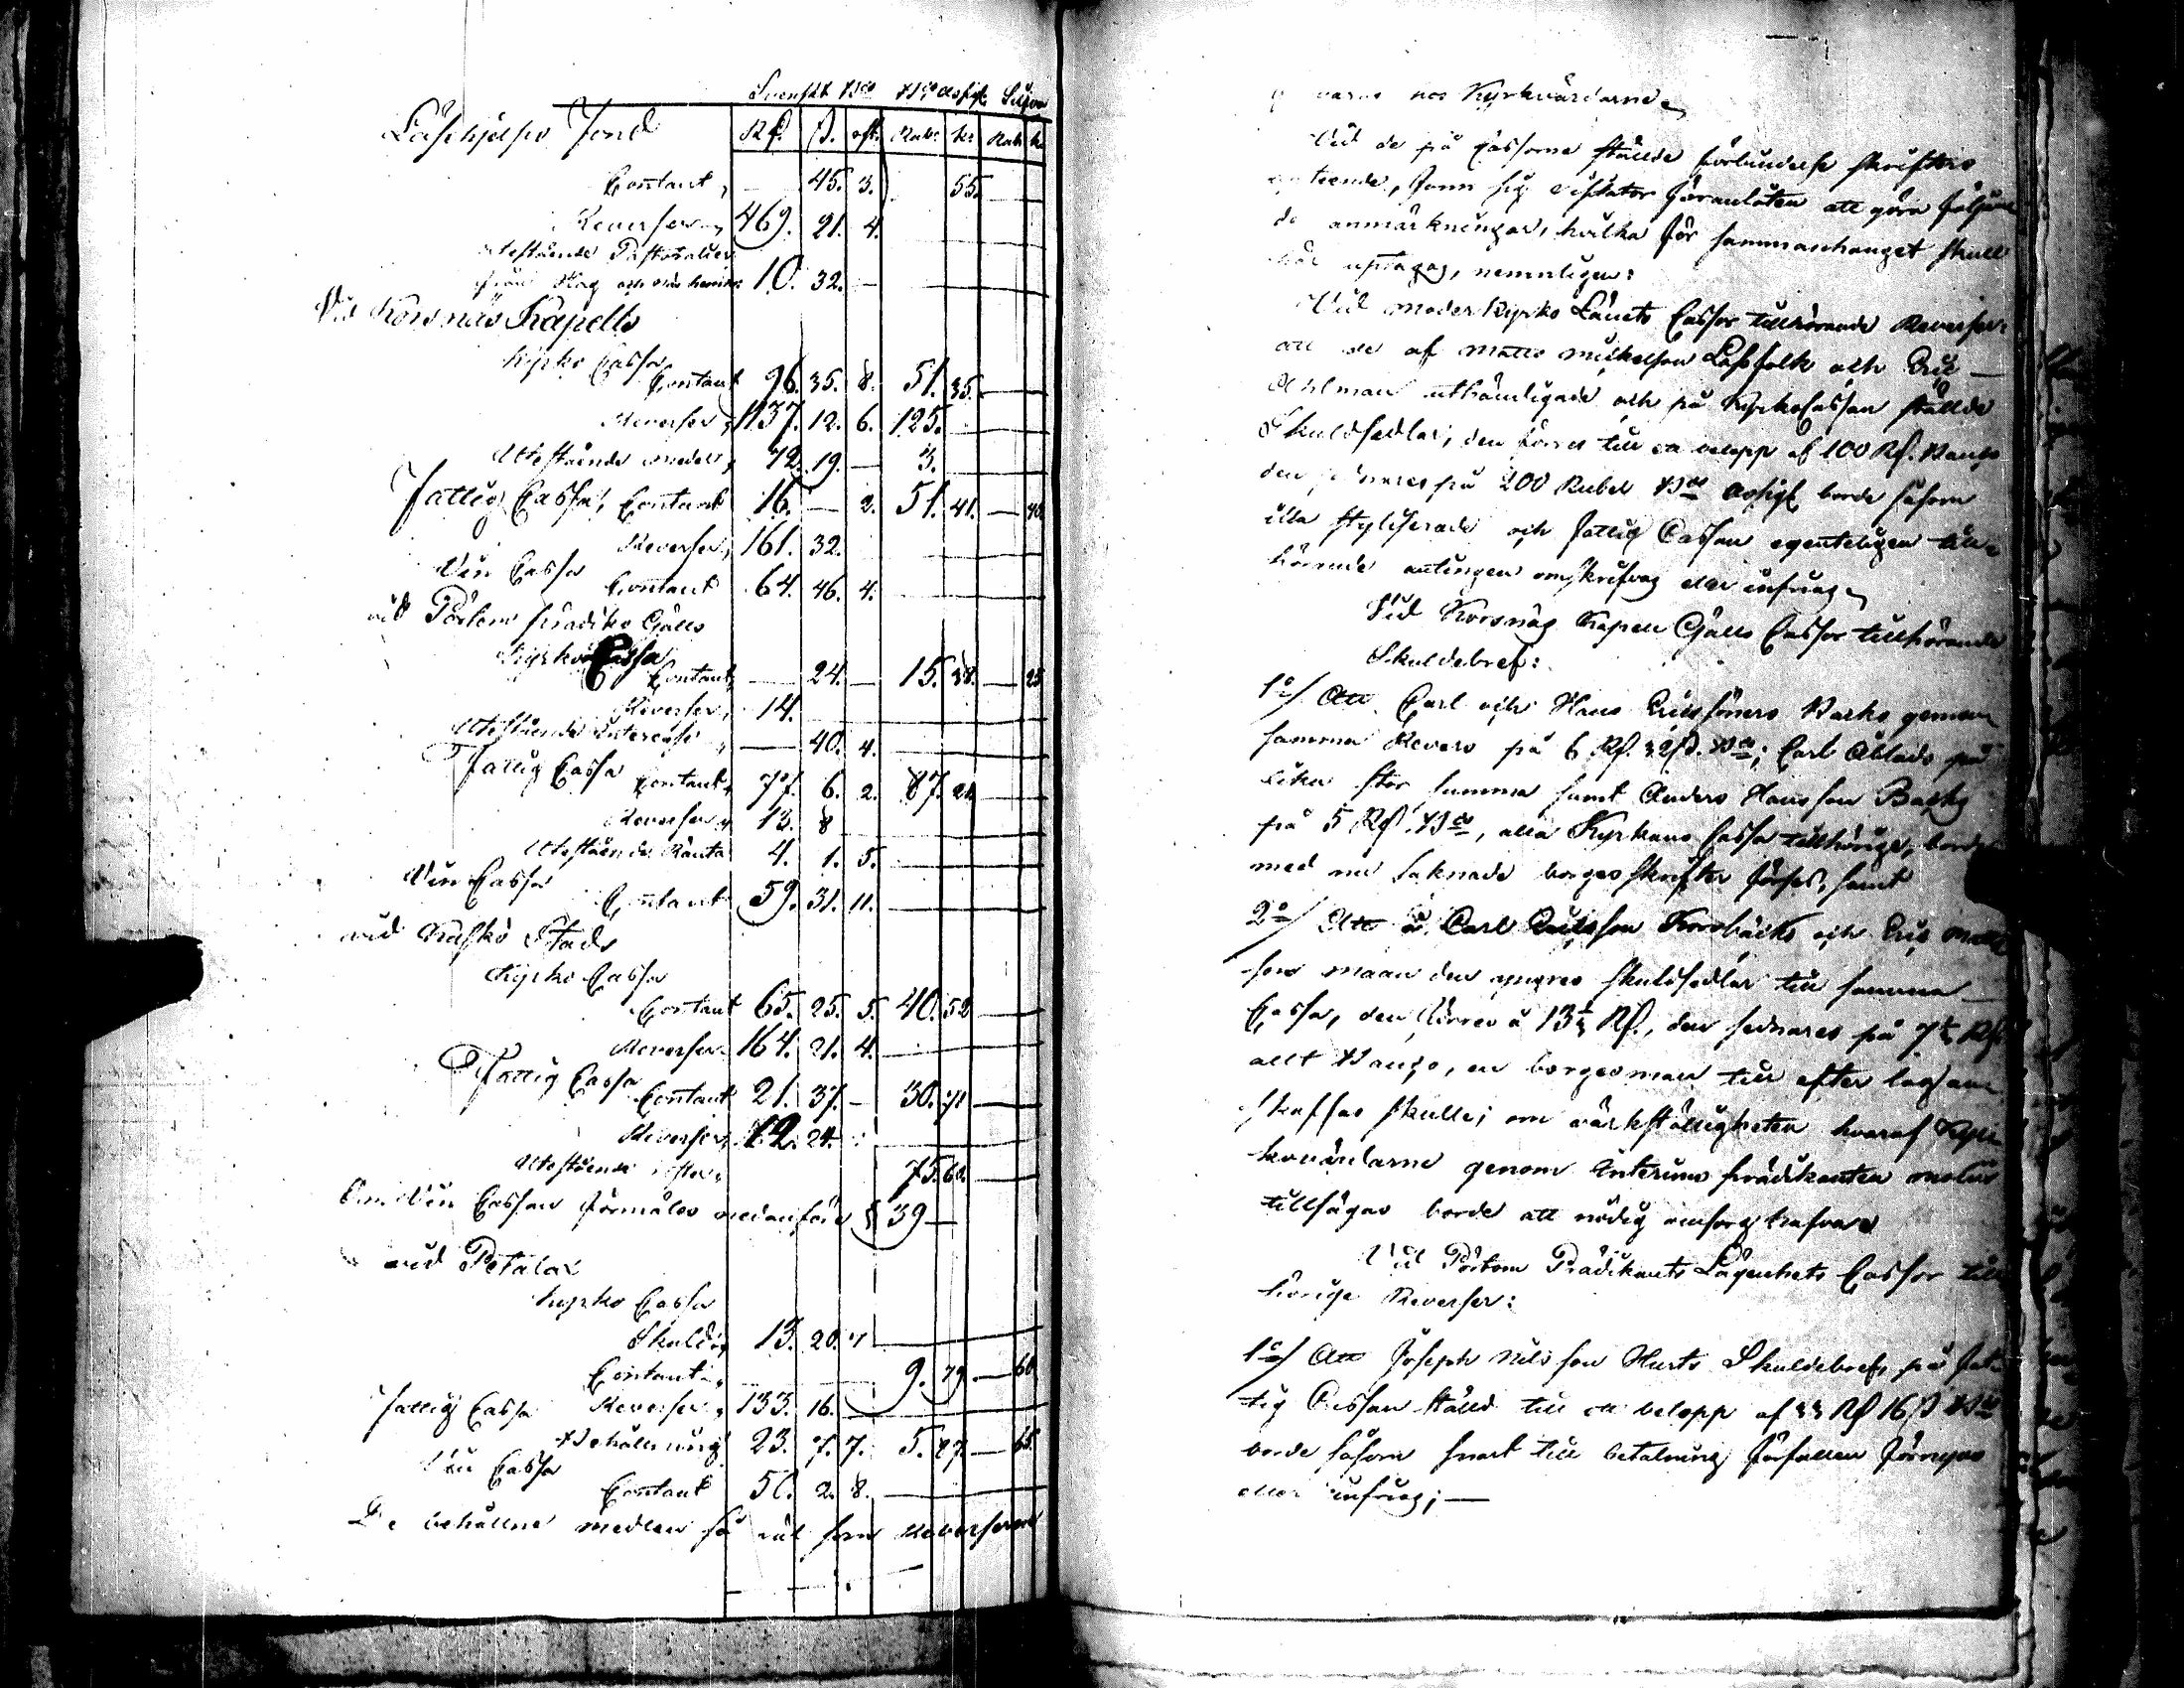 Svenskt Bco Bco Assigt Silfver
R£. ß. rst. Rub: ko Rub k
Läsehjelps Fond
Contant, — 45. 3. 55.
Reverser, 469. 21. 4.
utestående Pastoralier
från 10. 32. —
Vid Korsnäs Kapells
Kyrko Cassa
Contant 96. 35. 8. 51. 35.
Reverser, 1137. 12. 6. 125.
Utestående medel, 72. 19. — 3.
Fattig Cassa, Contant 16. — 2. 51. 41. — 40.
Reverser, 161. 32.
Vin Cassa
Contant 64. 46. 4.
vid Pörtom prædiko Gälls
Kyrko Cassa
Contant, — 24. — 15. 38. — 25
Reverser, 14.
Utestående Interesse, — 40. 4.
Fattig Cassa
Contant, 77. 6. 2. 87. 21
Reverser, 13. 8
Utestående Ränta 4. 1. 5.
Vin Cassa
Contant 59. 31. 11.
vid Kaskö Stads
Kyrko Cassa
Contant 65. 25. 5. 40. 52
Reverser 164. 21. 4.
Fattig Cassa
Contant 21. 37. — 30. 71
Reverser, 12. 24.
Utestående 75. 60.
Om Vin Cassan förmäles nedanföre § 39 —
vid Petalax
Kyrko Cassa
Skuld, 13. 20. 7
Contant, 9. 79. — 60
Fattig Cassa Reverser, 133. 16.
Behållning 23. 7. 7. 5. 27. — 65.
Vin Cassa
Contant 50. 2. 8.
De behållne medlen så väl som Reverserne
varas hos Kyrkvärdarne
Vid de på Cassorne ställde förbindelse skrifters
seende, fann sig Visitator föranlåten att göra följan
de anmärkningar, hvilka för sammanhanget skull
här uptagas, nemnligen:
Vid moderkyrko Länets Cassor tillhörande Reverser
att de af Matts Mickelson Lassfolk och Eric —
Ahlman uthändigade och på Kyrkocassan ställde
Skuldsedlar, den förres till en belopp af 100 R£. Banco
den sednares på 200 Rubel Bco Assigt borde såsom
illa styliserade och Fattig Cassan egenteligen till-
hörande antingen omskrifvas eller infrias
Vid Korsnäs Kapell Gälls Cassor tillhörande
Skuldebref:
1o/ Att Carl och Hans Erics söners Backs gemen
samma Revers på 6 R£. 32 ß. Bco; Carl på
lika stor summa samt Anders Hansson Backs
på 5 R£. Bco, alla Kyrkans Cassa tillhörige, borde
med nu saknade borges skrifter förses, samt
2o/ Att å Carl Ericsson Korsbäcks och Eric Matts
son den yngres skuldsedlar till samma —
Cassa, den förres å 13 1/3 R£., den sednares på 7 R£.
allt Banco, en borgesman till efter lag an
skaffas skulle; om värkställigheten hvaraf Kyr
kovärdarne genom Interims prädikanten
tillsägas borde att nödig omsorg hafva
Vid Pörtom Prädikants Lägenhets Cassor till
hörige Reverser:
1o/ Att Joseph Nilsson Hurts Skuldebref, på Fat
tig Cassan ställd till en belopp af 33 R£ 16 ß Bco
borde såsom snart till betalning förfallen förnyas
eller infrias; —